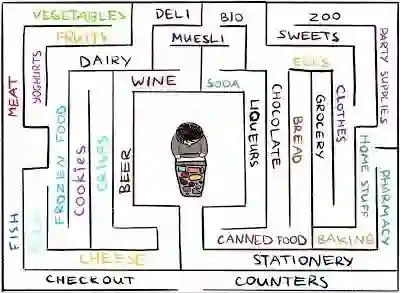 VEGETABLES
DELI
BIO
ZOO
FRUITS
MUESLI
SWEETS
DAIRY
EGGS
WINE
SODA
MEAT
YOGHURTS
FROZEN FOOD
COOKIES
CRISPS
BEER
LIQUEURS
CHOCOLATE
BREAD
GROCERY
CLOTHES
PARTY SUPPLIES
HOME STUFF
PHARMACY
FISH
CANNED FOOD
BAKING
CHEESE
STATIONERY
CHECKOUT
COUNTERS